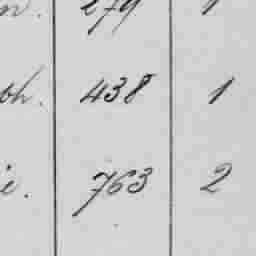 n. 279 1
th. 438 1
ie. 763 2